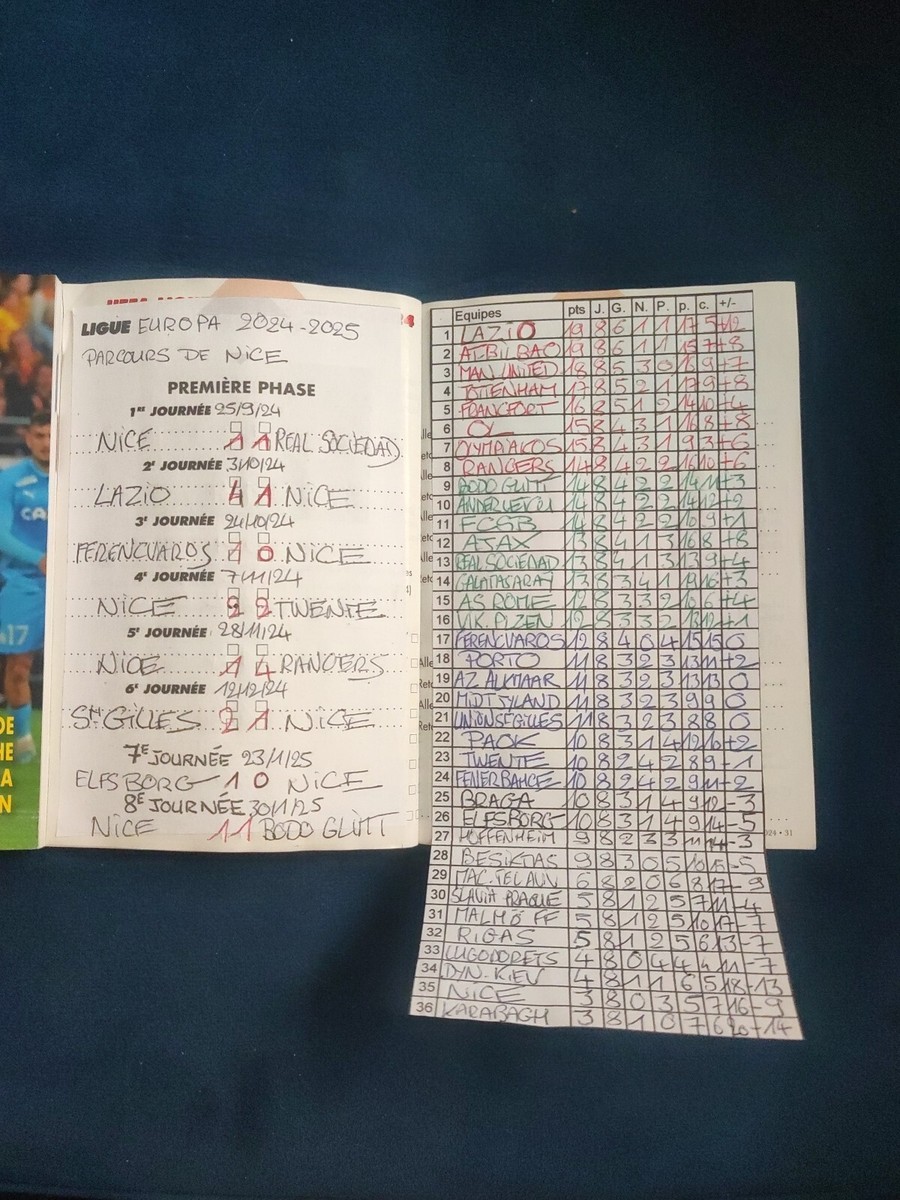 LIGUE EUROPA 2024-2025
PARCOURS DE NICE
PREMIÈRE PHASE
1re JOURNÉE 25/9/24
NICE 1 1 REAL SOCIEDAD
2e JOURNÉE 3/10/24
LAZIO 4 1 NICE
3e JOURNÉE 24/10/24
FERENCVAROS 1 0 NICE
4e JOURNÉE 7/11/24
NICE 2 2 TWENTE
5e JOURNÉE 28/11/24
NICE 1 4 RANGERS
6e JOURNÉE 12/12/24
St GILLES 2 1 NICE
7E JOURNÉE 23/1/25
ELFSBORG 1 0 NICE
8E JOURNÉE 30/1/25
NICE 1 1 BODO GLITT
Equipes pts J. G. N. P. p. c. +/-
1 LAZIO 19 8 6 1 1 17 5 +12
2 ATBILBAO 19 8 6 1 1 15 7 +8
3 MAN.UNITED 18 8 5 3 0 16 9 +7
4 TOTTENHAM 17 8 5 2 1 17 9 +8
5 FRANCFORT 16 8 5 1 2 14 10 +4
6 OL 15 8 4 3 1 16 8 +8
7 OLYMPIAKOS 15 8 4 3 1 9 3 +6
8 RANGERS 14 8 4 2 2 16 10 +6
9 BODO GLITT 14 8 4 2 2 14 11 +3
10 ANDERLECHT 14 8 4 2 2 14 12 +2
11 FCSB 14 8 4 2 2 10 9 +1
12 AJAX 13 8 4 1 3 16 8 +8
13 REAL SOCIEDAD 13 8 4 1 3 13 9 +4
14 GALATASARAY 13 8 3 4 1 19 16 +3
15 AS ROME 12 8 3 3 2 10 6 +4
16 VIK.PLZEN 12 8 3 3 2 13 12 +1
17 FERENCVAROS 12 8 4 0 4 15 15 0
18 PORTO 11 8 3 2 3 13 11 +2
19 AZ ALKMAAR 11 8 3 2 3 13 13 0
20 MIDTJYLAND 11 8 3 2 3 9 9 0
21 UNION ST GILLES 11 8 3 2 3 8 8 0
22 PAOK 10 8 3 1 4 12 10 +2
23 TWENTE 10 8 2 4 2 8 9 -1
24 FENERBAHCE 10 8 2 4 2 9 11 -2
25 BRAGA 10 8 3 1 4 9 12 -3
26 ELFSBORG 10 8 3 1 4 9 14 -5
27 HOFFENHEIM 9 8 2 3 3 11 14 -3
28 BESIKTAS 9 8 3 0 5 10 15 -5
29 MAC.TEL AVIV 6 8 2 0 6 8 17 -9
30 SLAVIA PRAGUE 5 8 1 2 5 7 11 -4
31 MALMÖ FF 5 8 1 2 5 10 17 -7
32 RIGAS 5 8 1 2 5 6 13 -7
33 LUGODORETS 4 8 0 4 4 4 11 -7
34 DYN. KIEV 4 8 1 1 6 5 18 -13
35 NICE 3 8 0 3 5 7 16 -9
36 KARABAGH 3 8 1 0 7 6 20 -14
17